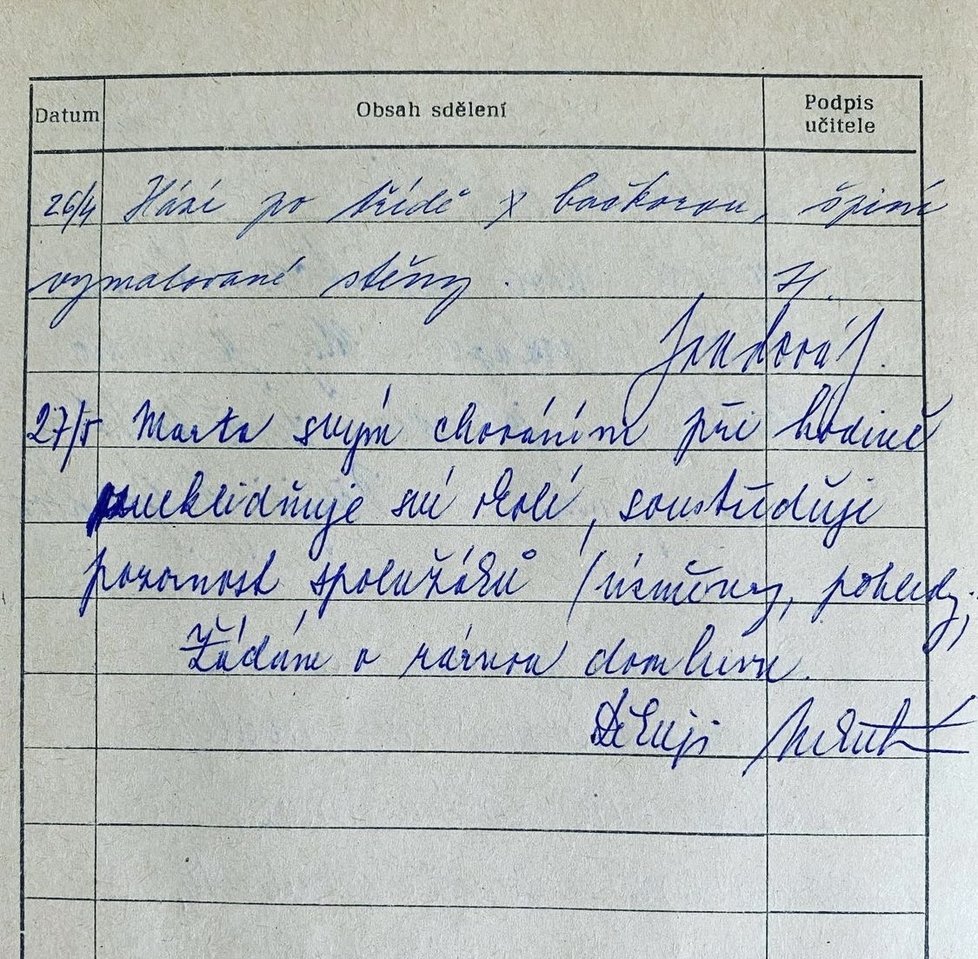 Datum Obsah sdělení Podpis učitele
26/4 Hází po třídě bačkorou, špiní
vymalované stěny.
27/5 Marta svým chováním při hodině
zneklidňuje své okolí, soustřeďuje
pozornost spolužáků (úsměvy, pohledy,
Žádám o ráznou domluvu.
Děkuji